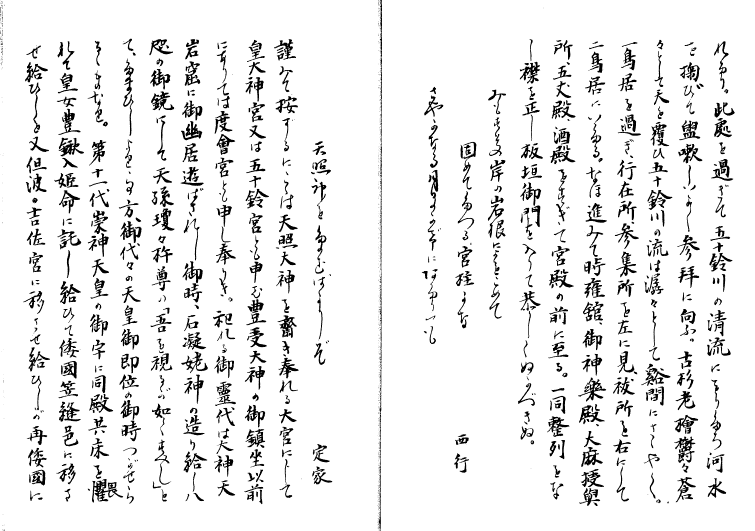 れたり。此處を過ぎて五十鈴川の清流に
を掬びて盥嗽し、参拜に向ふ。古杉老檜欝々蒼
々として天を覆ひ五十鈴川の流は潺々として谿間に
一鳥居を過ぎ、行在所、参集所を左に見、祓所を右にして
二鳥居にいたる。なほ進みて時雍舘、御神樂殿、大麻授與
所、五丈殿、酒殿をすぎて宮殿の前に至る。一同整列をな
し襟を正し板垣御門を入りて恭しくぬかづきぬ。
岸の岩根に
固めたつる宮柱かな
西行
さやかなる月
天照神
定家
謹みて按ずるに、こは天照大神を齋き奉れる大宮にして
皇大神宮又は五十鈴宮とも申す豊受大神の御鎮坐以前
にありては度會宮とも申し奉りき。祀れる御靈代は大神天
岩窟に御幽居遊ばされし御時、石凝姥神の造り給し八
咫の御鏡にして天孫瓊々杵尊に「吾を視るが如くせよ」と
て、たまひしより以方、御代々の天皇御即位の御時つがせら
第十一代崇神天皇の御宇に同殿共床を畏
れて皇女豊鍬入姫命に託し給ひて倭國笠縫邑に移さ
せ給ひしを又但波の吉佐宮に移させ給ひしが再倭國に